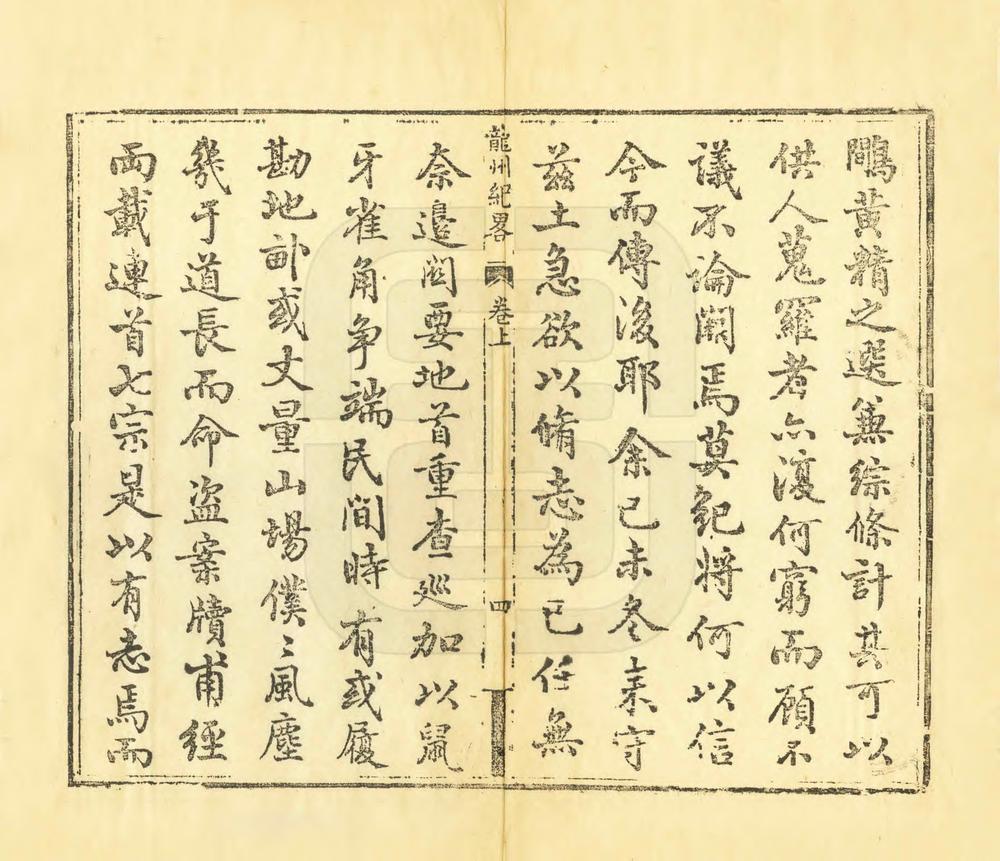 鷳黃精之選兼綜條計其可以
供人蒐羅者亦復何窮而顧不
議不論闕焉莫紀將何以信
今而傳後耶余己未冬來守
茲土急欲以脩志為己任無
龍州紀畧 卷上 四
奈邊闗要地首重查巡加以鼠
牙雀角爭端民間時有或履
勘地畝或丈量山場僕〻風塵
幾于道長而命盜案牘甫經
兩載連首七宗是以有志焉而